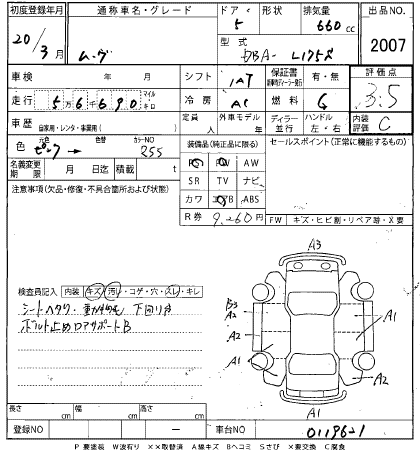 初度登録年月 通称車名・グレード ドア 形状 排気量 出品NO
20/3月 ムーヴ 5 660cc 2007
型式 DBA-L175S
車検 年 月 シフト IAT 保証書 有・無 評価点
走行 5万6千690 マイル キロ 冷房 AC 燃料 G 3.5
車歴 自家用・レンタ・事業用( ) 定員 人 外車モデル 年 ディーラー 並行 ハンドル 左・右 内装評価 C
色 元色 ピンク → 色替 カラーNO 255 装備品(純正品に限る) セールスポイント(正常に機能するもの)
名義変更期限 月 日迄 積載 t PS PW AW
注意事項(欠品・修復・不具合箇所および状態) SR TV ナビ
カワ エアB ABS
R券 9,260円 FW キズ・ヒビ割・リペア跡・X要
検査員記入 内装 キズ・汚レ・コゲ・穴・スレ・キレ
シートヘタリ 下回りサ
ボルト止め B
A3
B3
A2
A2
A1
A1
A1
A2
A1
長さ cm 幅 cm 高さ cm
登録NO ー 車台NO 0119621
P 要塗装 W波有り ××取替済 A線キズ Bヘコミ Sさび ×要交換 C腐食